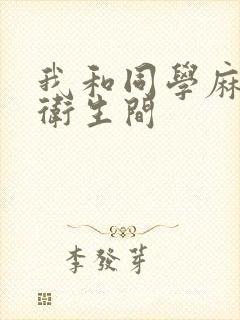 我和同學麻
衛生間
李發芽